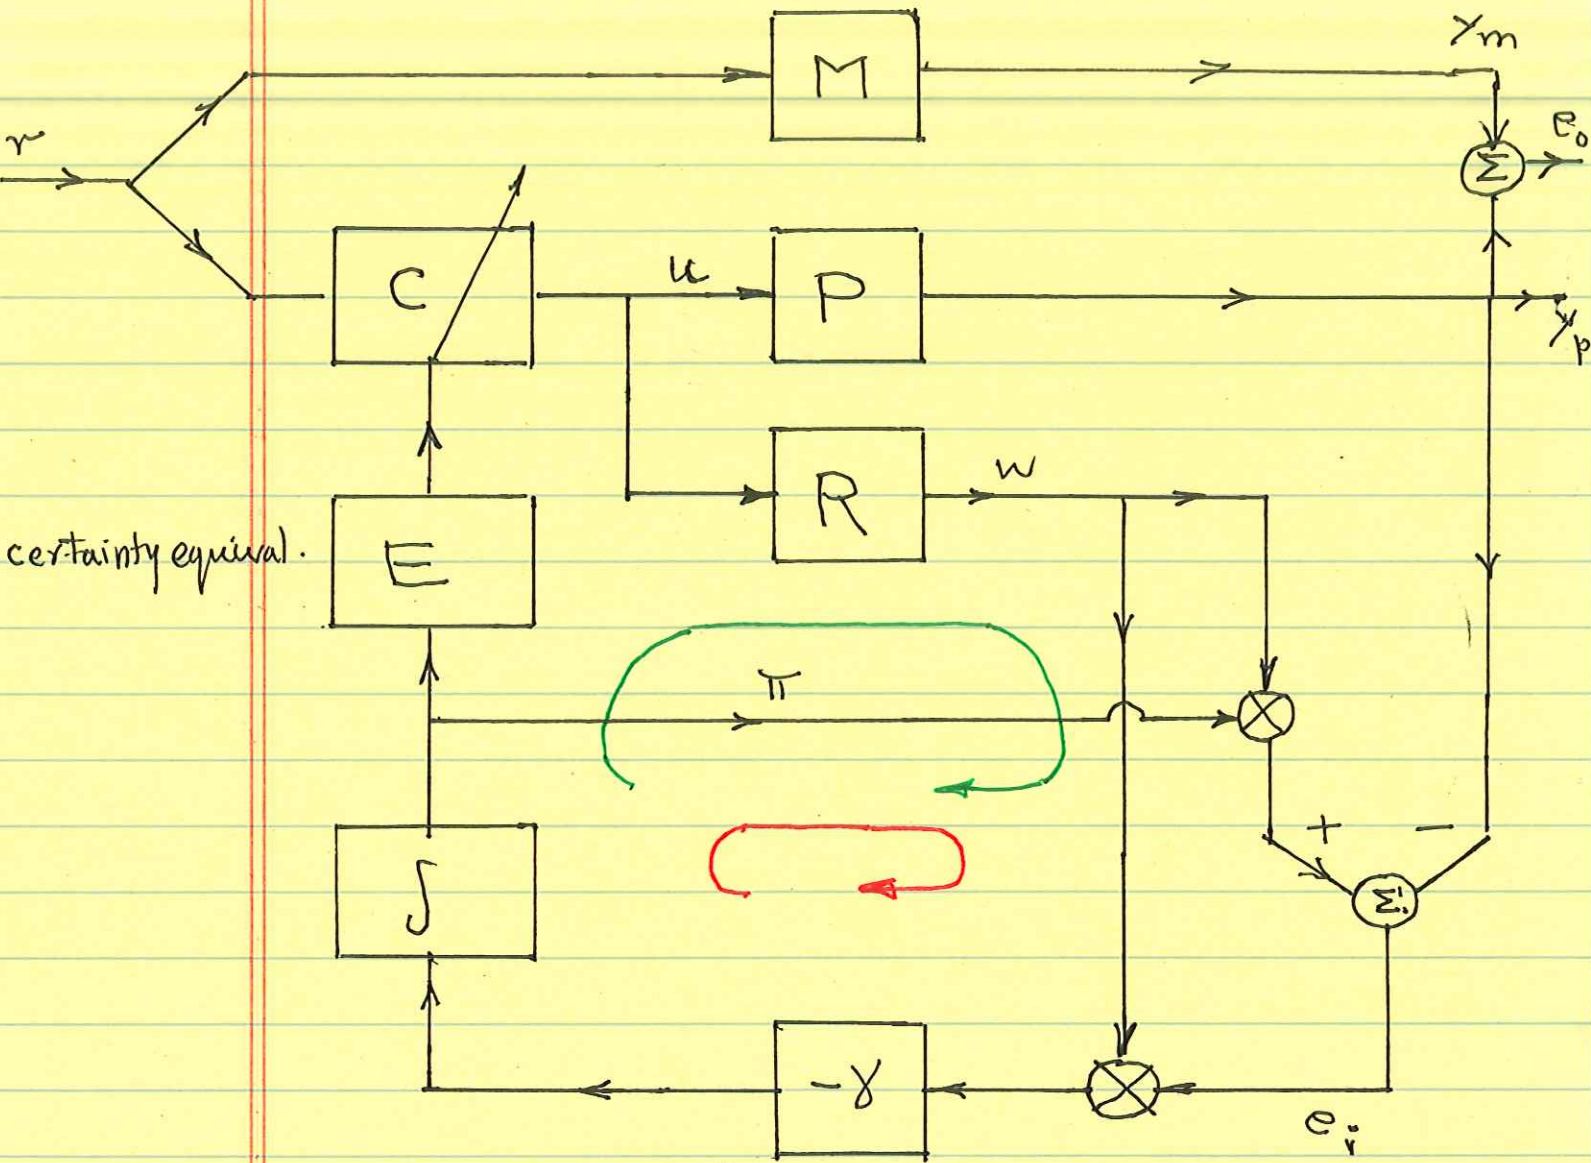 M
y_m
r
e_o
Σ
C
u
P
y_p
R
w
certainty equival.
E
π
+
−
∫
Σ
−γ
e_i